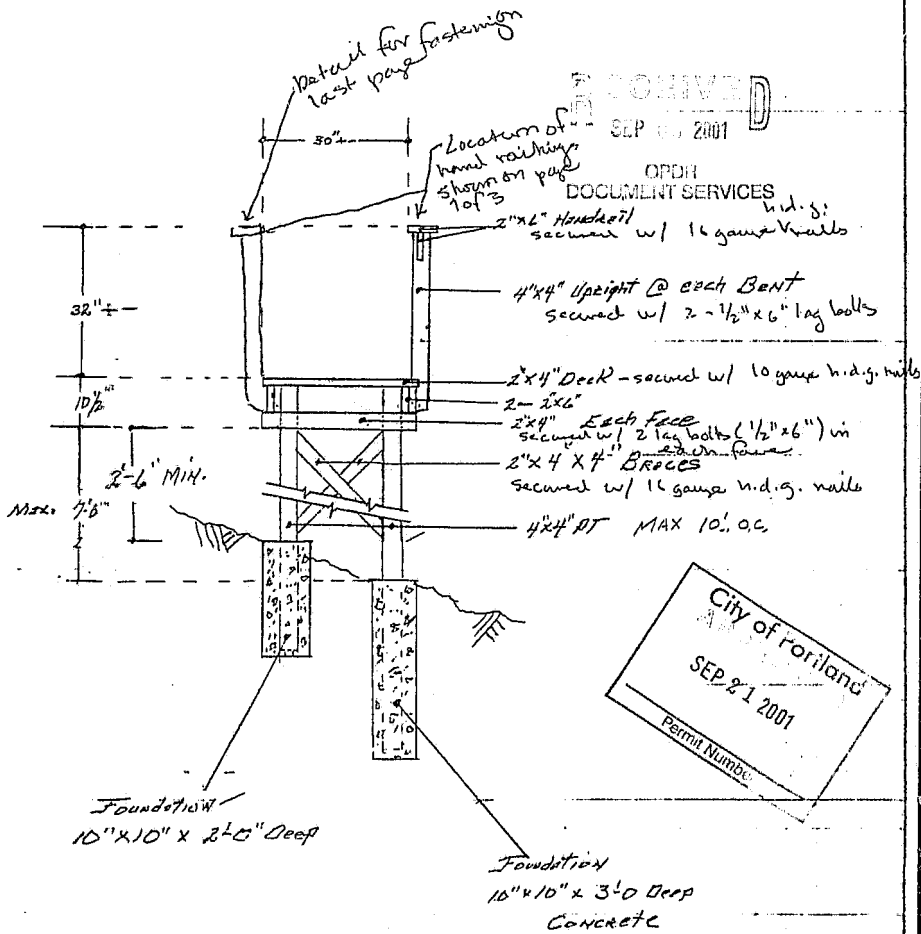 Detail for fastenion
last page
30"±
Location of
hand railing
shown on page
1 of 3
RECEIVED
SEP 2001
OPDR
DOCUMENT SERVICES
2"x6" Handrail h.d.g.
secured w/ 16 gauge nails
4"x4" Upright @ each Bent
secured w/ 2 - 1/2" x 6" lag bolts
32"±
2"x4" Deck - secured w/ 10 gauge h.d.g. nails
10 1/2"
2 - 2"x6"
2"x4" Each Face
secured w/ 2 lag bolts (1/2" x 6") in
each face
2" x 4" x 4" Braces
secured w/ 16 gauge h.d.g. nails
2'-6" Min.
Max. 7'6"
4"x4" PT MAX 10' O.C.
City of Portland
SEP 21 2001
Permit Number
Foundation
10"x10" x 2'-0" Deep
Foundation
10"x10" x 3'-0 Deep
Concrete